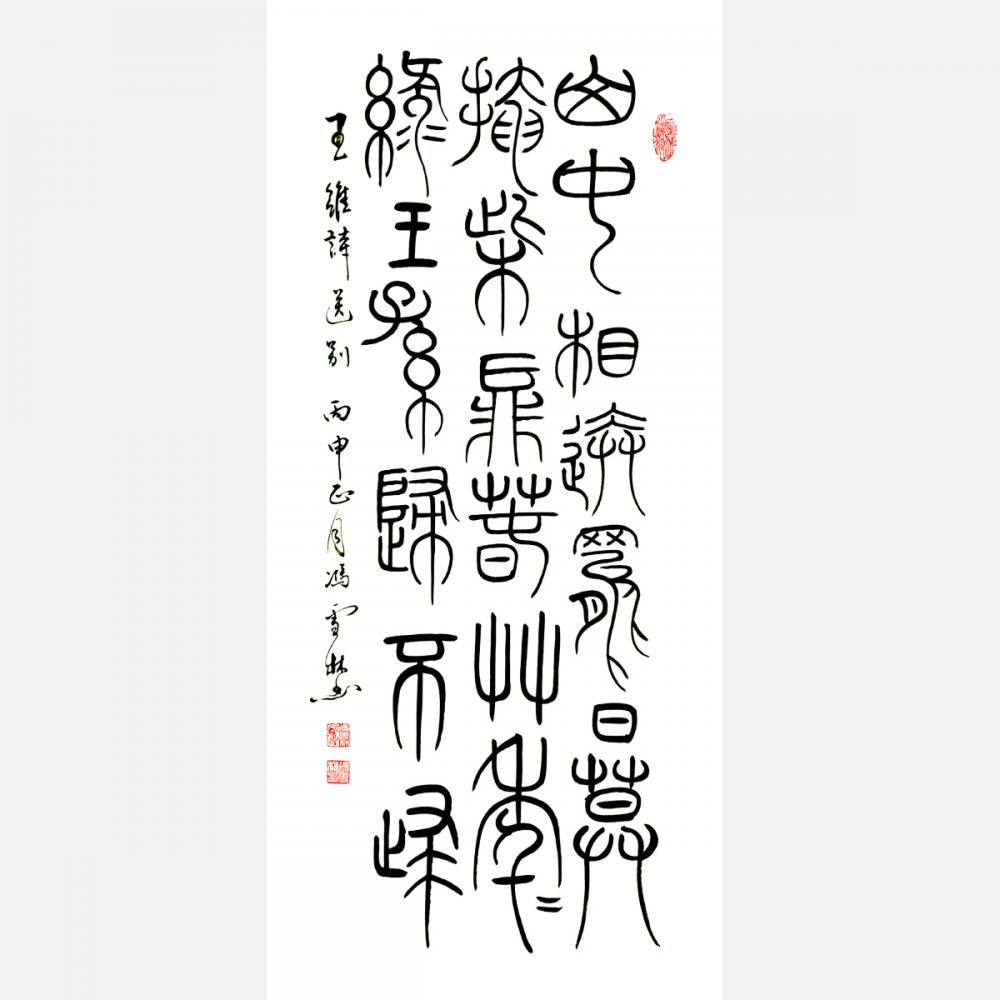 山中相送罷日暮
掩柴扉春草年〻
綠王孫歸不歸
王維詩送別 丙申正月馮雪林書